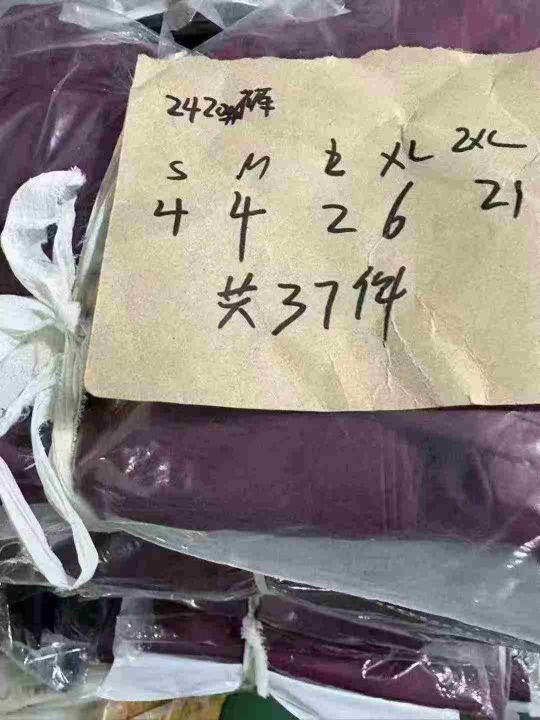 2420#裤
S M L XL 2XL
4 4 2 6 21
共37件